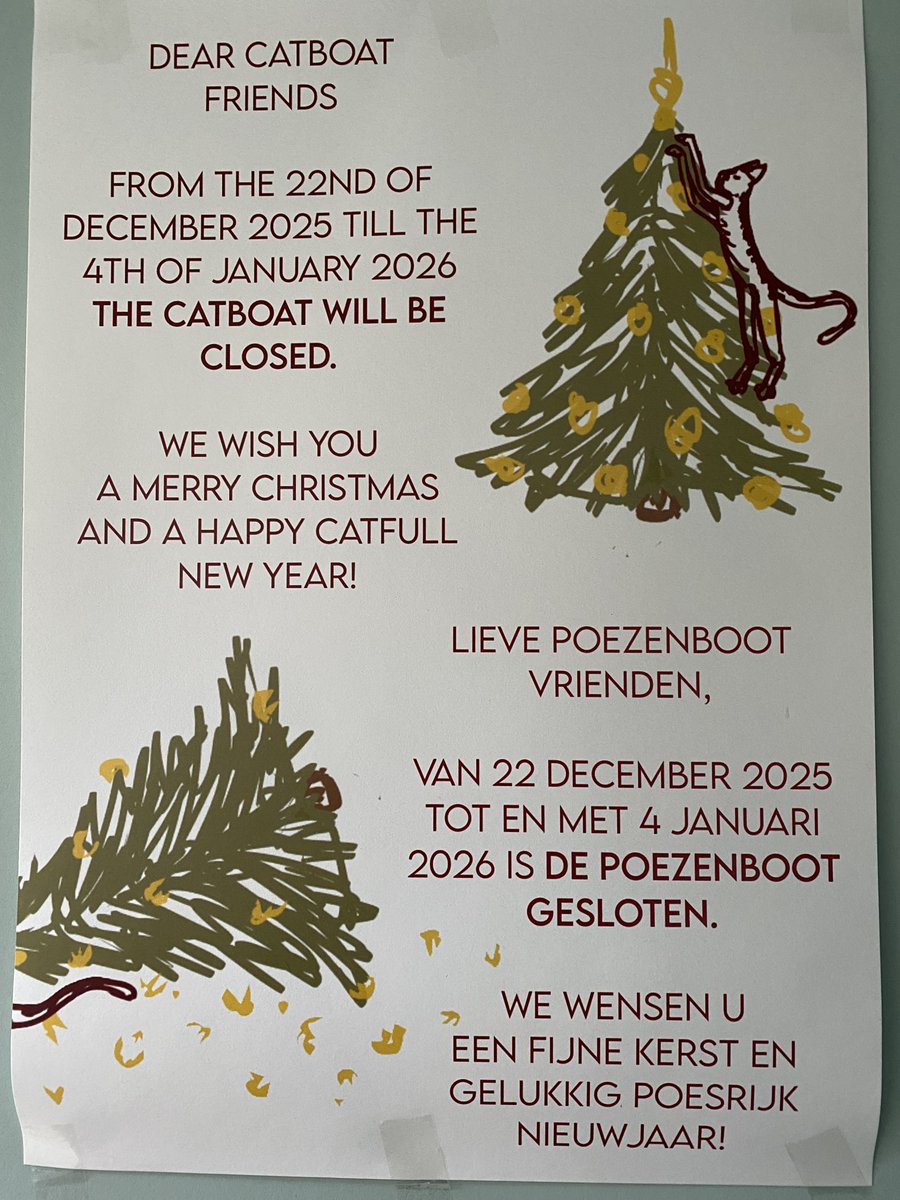 DEAR CATBOAT
FRIENDS
FROM THE 22ND OF
DECEMBER 2025 TILL THE
4TH OF JANUARY 2026
THE CATBOAT WILL BE
CLOSED.
WE WISH YOU
A MERRY CHRISTMAS
AND A HAPPY CATFULL
NEW YEAR!
LIEVE POEZENBOOT
VRIENDEN,
VAN 22 DECEMBER 2025
TOT EN MET 4 JANUARI
2026 IS DE POEZENBOOT
GESLOTEN.
WE WENSEN U
EEN FIJNE KERST EN
GELUKKIG POESRIJK
NIEUWJAAR!